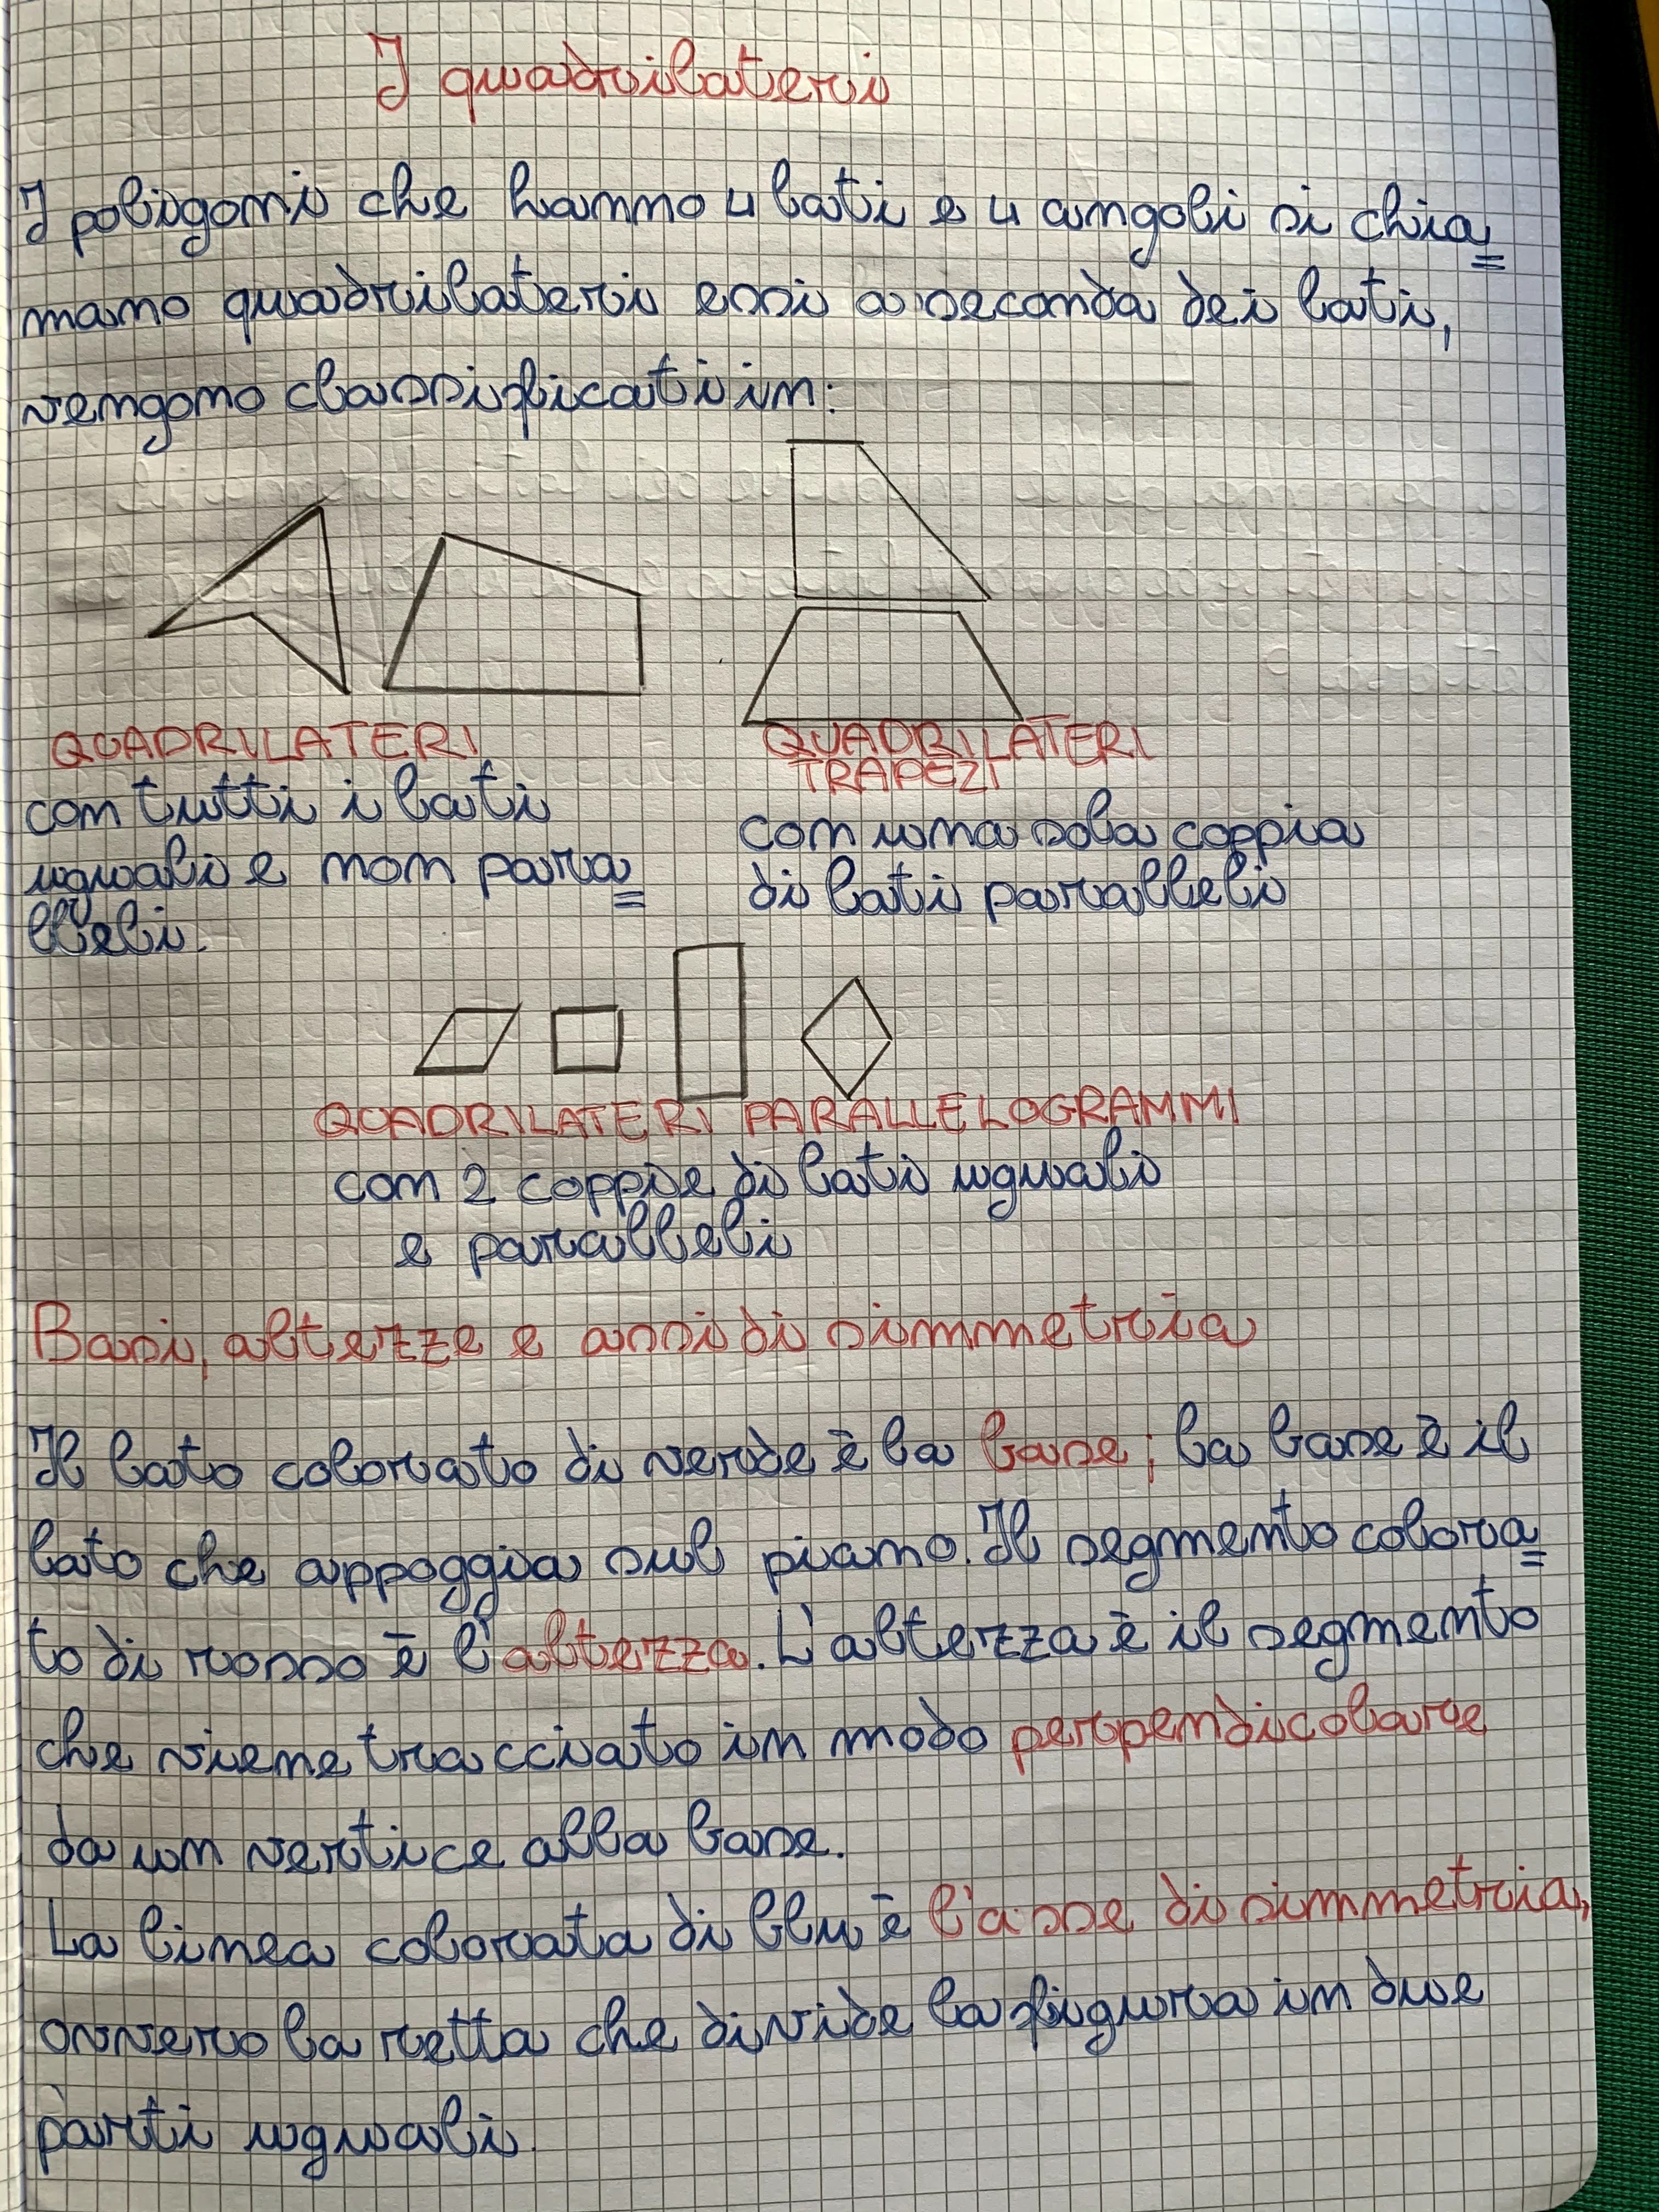 I quadrilateri
I poligoni che hanno 4 lati e 4 angoli si chia=
mano quadrilateri essi a seconda dei lati,
vengono classificati in:
QUADRILATERI
con tutti i lati
uguali e non para=
lleli.
QUADRILATERI
TRAPEZI
con una sola coppia
di lati paralleli
QUADRILATERI PARALLELOGRAMMI
con 2 coppie di lati uguali
e paralleli
Basi, altezze e assi di simmetria
Il lato colorato di verde è la base; la base è il
lato che appoggia sul piano. Il segmento colora=
to di rosso è l'altezza. L'altezza è il segmento
che viene tracciato in modo perpendicolare
da un vertice alla base.
La linea colorata di blu è l'asse di simmetria,
ovvero la retta che divide la figura in due
parti uguali.